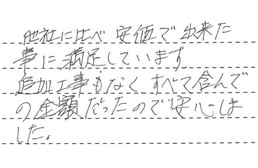 他社に比べ安価で出来た
事に満足しています
追加工事もなくすべて含んで
の金額だったので安心しま
した。